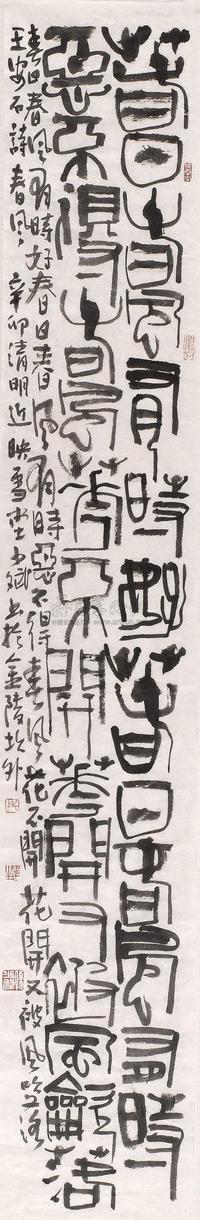 春日春風有時好春日春風有時
惡不得春風花不開花開又被風吹落
春日春風有時好春日春風有時惡不得春風花不開花開又被風吹落
王安石詩春風辛卯清明近映雪堂書於金陵城外